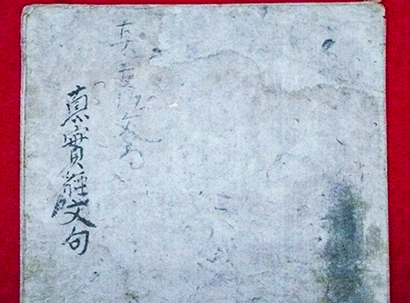 真文句
真實經文句